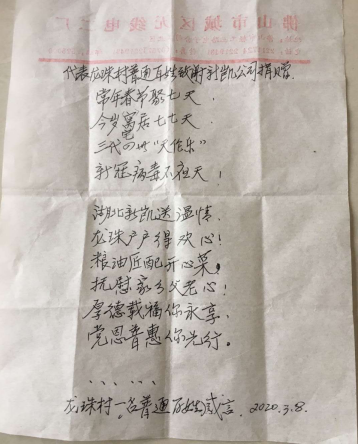 佛山市城区无线电三厂
代表龙珠村普通百姓致谢新凯公司捐赠.
常年春节聚七天,
今岁窝居七七天.
三代四世"天伦乐"
新冠病毒不夜天!
湖北新凯送温情,
龙珠户户得欢心!
粮油匹配开心菜,
抚慰家乡父老心!
厚德载福你永享,
党恩普惠你先行。
......
龙珠村一名普通百姓感言. 2020.3.8.